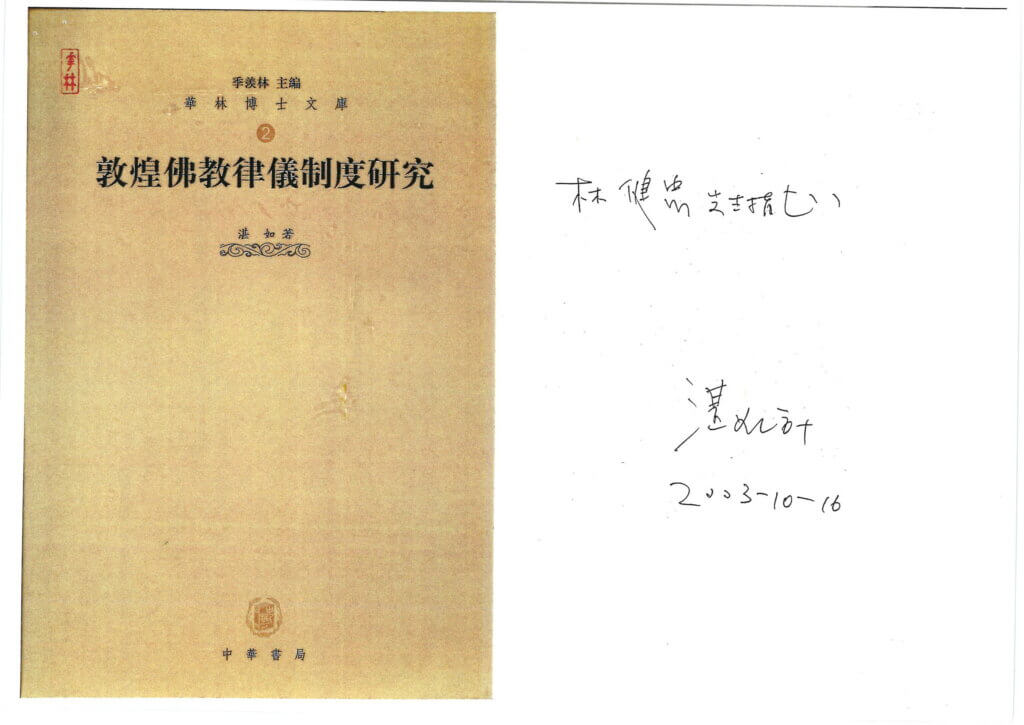 季羨林 主編
華林博士文庫
2
敦煌佛教律儀制度研究
湛如著
中華書局
林健忠 先生指
湛如
2003-10-16